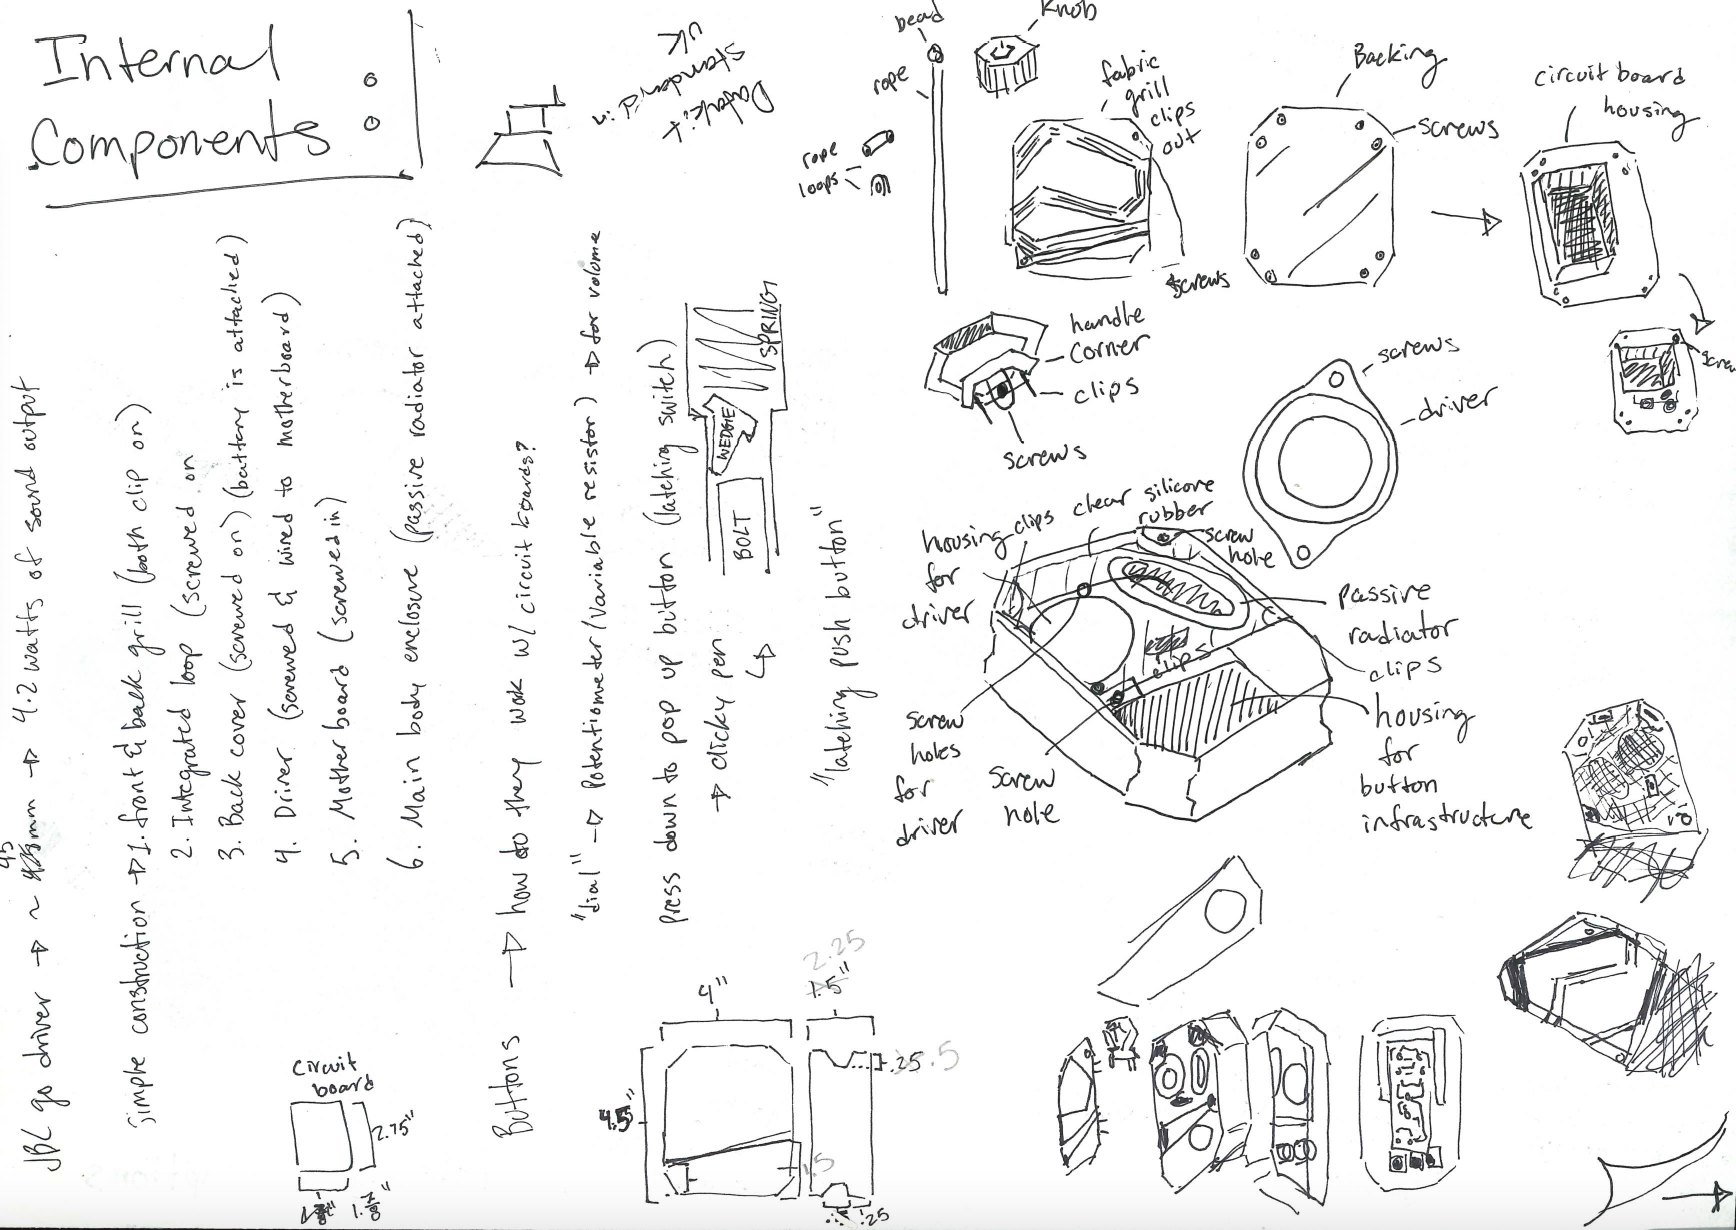 Internal
Components:
Datakit
standard in
UK
JBL go driver → ~ 45mm → 4.2 watts of sound output
simple construction → 1. front & back grill (both clip on)
2. Integrated loop (screwed on
3. Back cover (screwed on) (battery is attached)
4. Driver (screwed & wired to motherboard)
5. Motherboard (screwed in)
6. Main body enclosure (passive radiator attached)
Buttons → how do they work w/ circuit boards?
"dial" → Potentiometer/variable resistor) → for volume
press down to pop up button (latching switch)
→ clicky pen
"latching push button"
SPRING
WEDGE
BOLT
circuit
board
2.75"
1.7/8"
4"
2.25
1.5"
4.5"
.25
.5
1.5
.25
bead
rope
rope
loops
Knob
fabric
grill
clips
out
screws
Backing
screws
circuit board
housing
screws
handle
corner
clips
screws
screws
driver
housing
for
driver
clips
clear silicone
rubber
screw
hole
passive
radiator
clips
clips
housing
for
button
infrastructure
screw
holes
for
driver
screw
hole